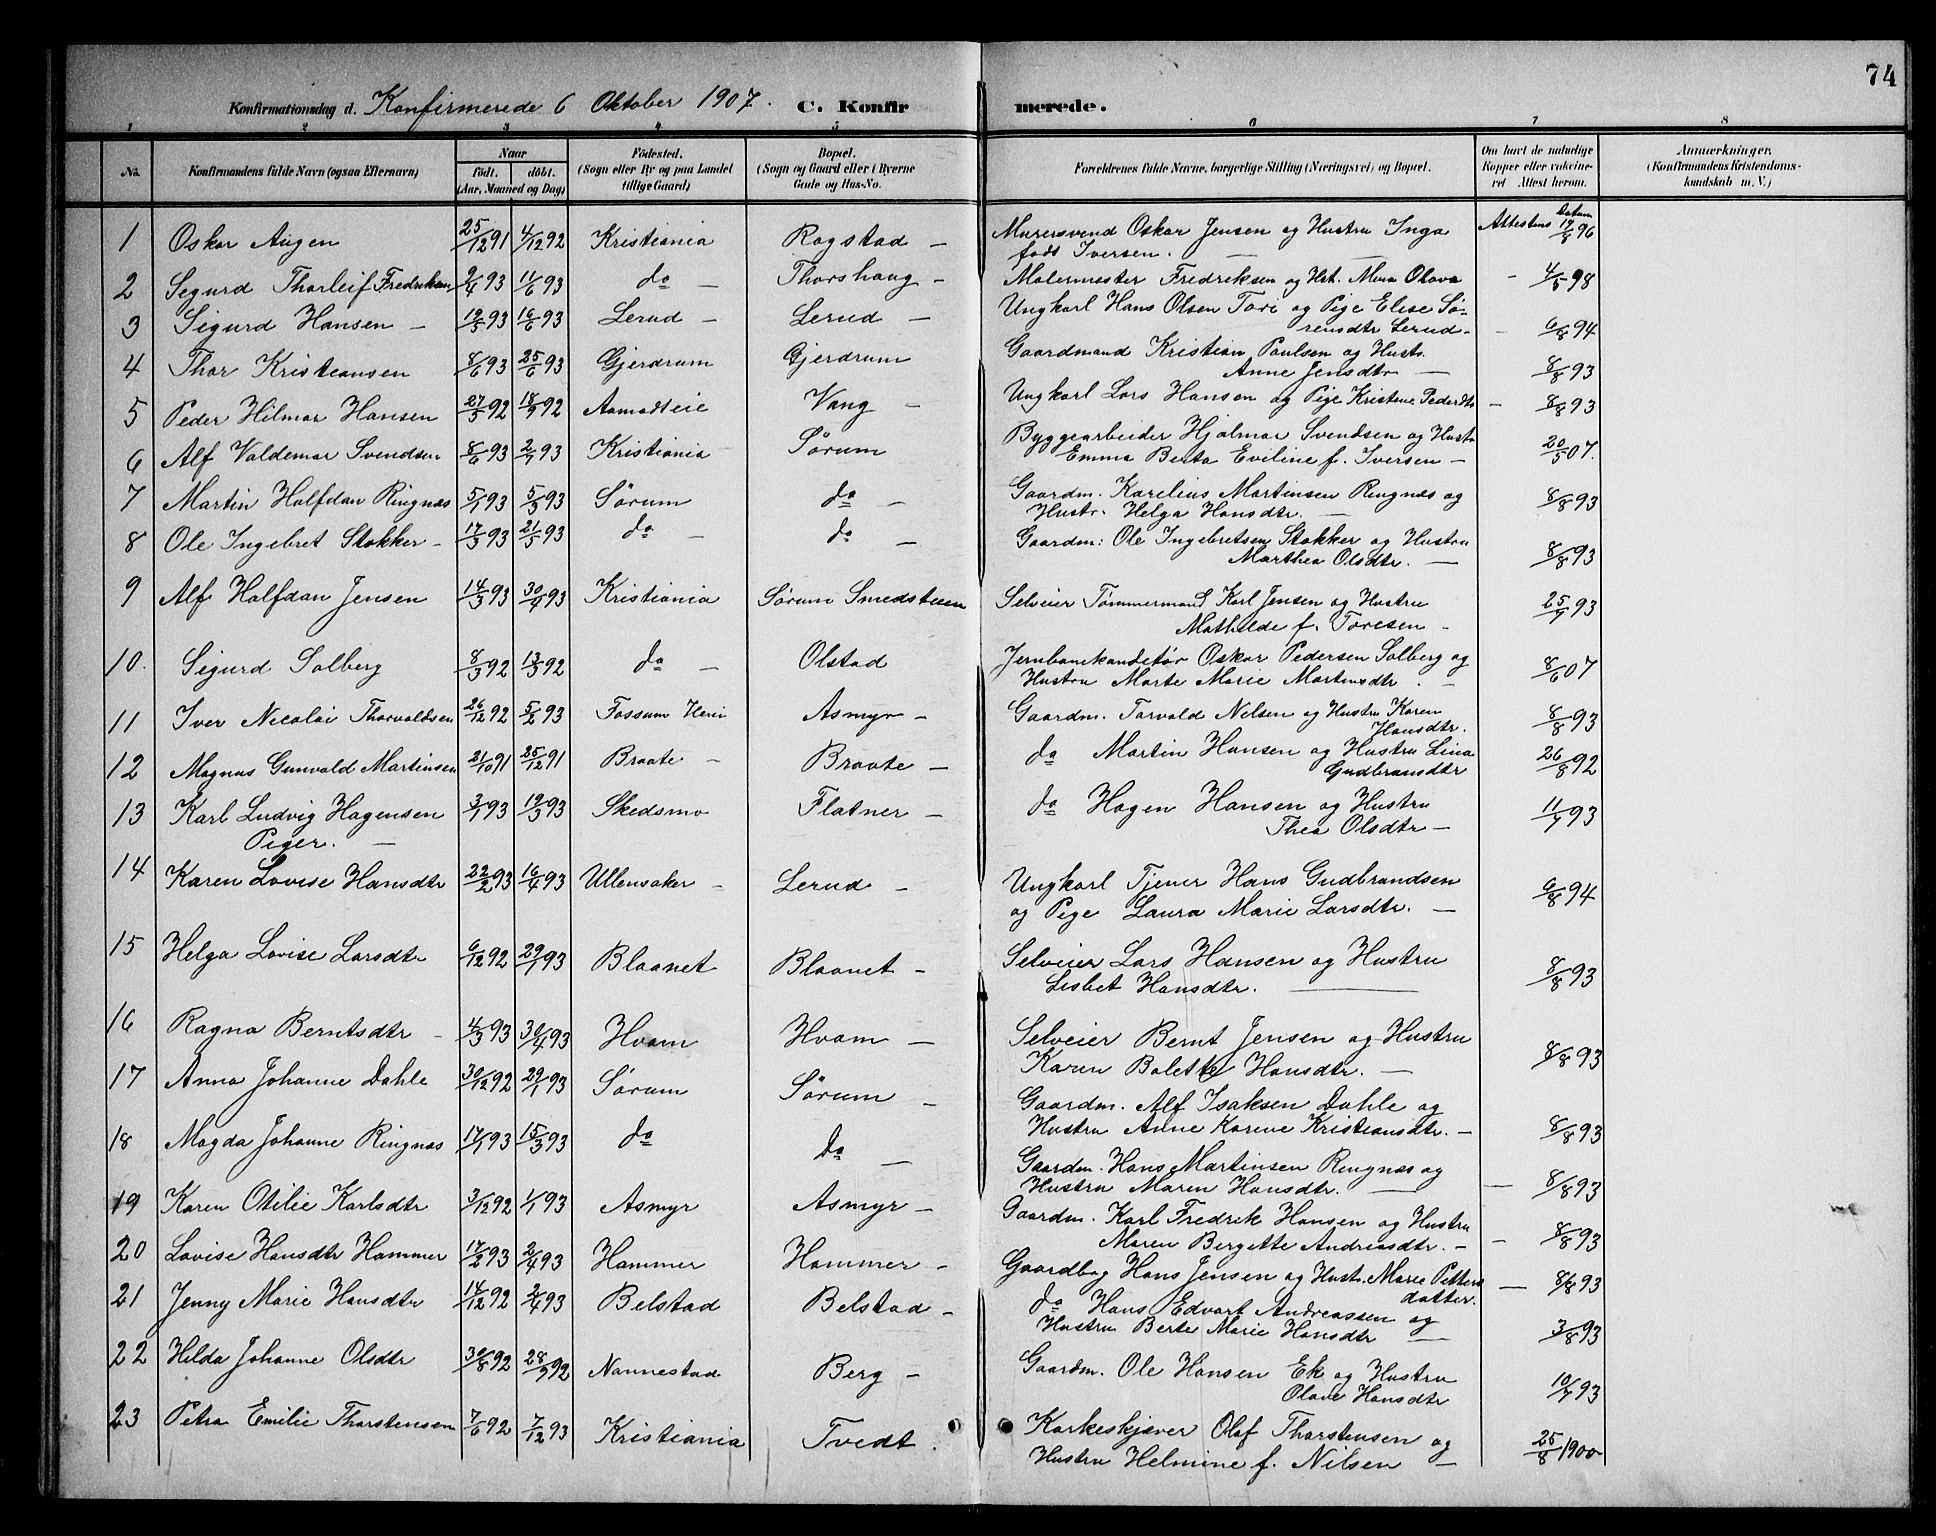 74
Konfirmationsdag d. Konfirmerede 6 Oktober 1907. C. Konfirmerede.
1 2 3 4 5 6 7 8
No. Konfirmandens fulde Navn (ogsaa Efternavn) Naar født. døbt. (Aar, Maaned og Dag) Fødested. (Sogn eller By og paa Landet tillige Gaard) Bopæl. (Sogn og Gaard eller i Byerne Gade og Hus-No. Forældrenes fulde Navne, borgerlige Stilling (Næringsvei) og Bopæl. Om havt de naturlige Kopper eller vakcineret. Attest herom. Anmærkninger. (Konfirmandens Kristendomskundskab m. V.)
1 Oskar Augen 25/12 91 4/12 92 Kristiania Ragstad — Murersvend Oskar Jensen og Hustru Inga Attestens Datum 17/8 96
født Iversen. —
2 Segurd Thorleif Fredriksen 9/4 93 11/6 93 do — Thorshaug — Malermester Fredriksen og Hst. Mina Olava — 4/5 98
3 Sigurd Hansen — 19/5 93 16/6 93 Lerud — Lerud — Ungkarl Hans Olsen Tori og Pige Elise Sø-
rensdtr Lerud — 6/8 94
4 Thor Kristiansen 8/6 93 25/6 93 Gjerdrum Gjerdrum Gaardmand Kristian Paulsen og Hustr.
Anne Jensdtr — 8/8 93
5 Peder Hilmar Hansen 27/5 92 18/9 92 Asmadteie Vang — Ungkarl Lars Hansen og Pige Kristine Pedersdtr — 8/8 93
6 Alf Valdemar Svendsen 8/6 93 2/7 93 Kristiania Sørum Byggearbeider Hjalmar Svendsen og Hustr
Emma Berta Eviline f. Iversen — 20/5 07.
7 Martin Halfdan Ringnæs 5/1 93 5/3 93 Sørum do — Gaardm. Karelius Martinsen Ringnæs og
Hustr. Helga Hansdtr. — 8/8 93
8 Ole Ingebret Stokker — 17/3 93 21/5 93 do — do — Gaardm: Ole Ingebretsen Stokker og Hustru
Marthea Olsdtr. — 8/8 93
9 Alf Halfdan Jensen 14/3 93 30/4 93 Kristiania Sørum Smedstuen Selveier Tømmermand Karl Jensen og Hustru
Mathilde f. Toresen — 25/9 93
10. Sigurd Solberg 8/3 92 13/3 92 do — Olstad Jernbanekonduktør Oskar Pedersen Solberg og
Hustru Marte Marie Martinsdtr. — 8/6 07
11 Iver Nicolai Thorvaldsen 26/12 92 5/2 93 Fossum Asmyr — Gaardm. Torvald Nelsen og Hustru Karen
Hansdtr. 8/8 93
12 Magnus Gunvald Martinsen 21/10 91 25/12 91 Braate — Braate — do Martin Hansen og Hustru Lina
Gudbransdtr 26/8 92
13 Karl Ludvig Hagensen 3/1 93 19/3 93 Skedsmo Flatner — do Hagen Hansen og Hustru
Thea Olsdtr — 11/7 93
Piger. —
14 Karen Lovise Hansdtr 22/2 93 16/4 93 Ullensaker — Lerud — Ungkarl Tjener Hans Gudbrandsen
og Pige Laura Marie Larsdtr. — 6/8 94
15 Helga Lovise Larsdtr 6/12 92 29/1 93 Blaanet Blaanet — Selveier Lars Hansen og Hustru
Lisbet Hansdtr. — 8/8 93
16 Ragna Berntsdtr — 4/3 93 30/4 93 Hvam Hvam — Selveier Bernt Jensen og Hustru
Karen Bolette Hansdtr. — 8/8 93
17 Anna Johanne Dahle 30/12 92 29/1 93 Sørum Sørum — Gaardm. Alf Isaksen Dahle og
Hustru Anne Karine Kristiansdtr. — 8/8 93
18 Magda Johanne Ringnæs 17/1 93 15/3 93 do do — Gaardm. Hans Martinsen Ringnæs og
Hustru Maren Hansdtr. — 8/8 93
19 Karen Otilie Karlsdtr 3/12 92 1/1 93 Asmyr Asmyr — Gaardm. Karl Fredrik Hansen og Hustru
Maren Bergette Andreasdtr. — 8/8 93
20 Lovise Hansdtr Hammer 17/2 93 2/4 93 Hammer Hammer — Gaardbrg Hans Jensen og Hustr. Marie Petters
datter. — 8/8 93
21 Jenny Marie Hansdtr 14/12 92 2/4 93 Belstad Belstad — do Hans Edvart Andreassen og
Hustru Berte Marie Hansdtr — 3/8 93
22 Hilda Johanne Olsdtr 30/8 92 28/9 92 Nannestad Berg — Gaardm. Ole Hansen Ek og Hustru
Olave Hansdtr 10/7 93
23 Petra Emilie Thorstensen 7/6 92 7/12 93 Kristiania Tvedt. Korkeskjærer Olaf Thorstensen og
Hustru Helmine f. Nilsen — 25/8 1900